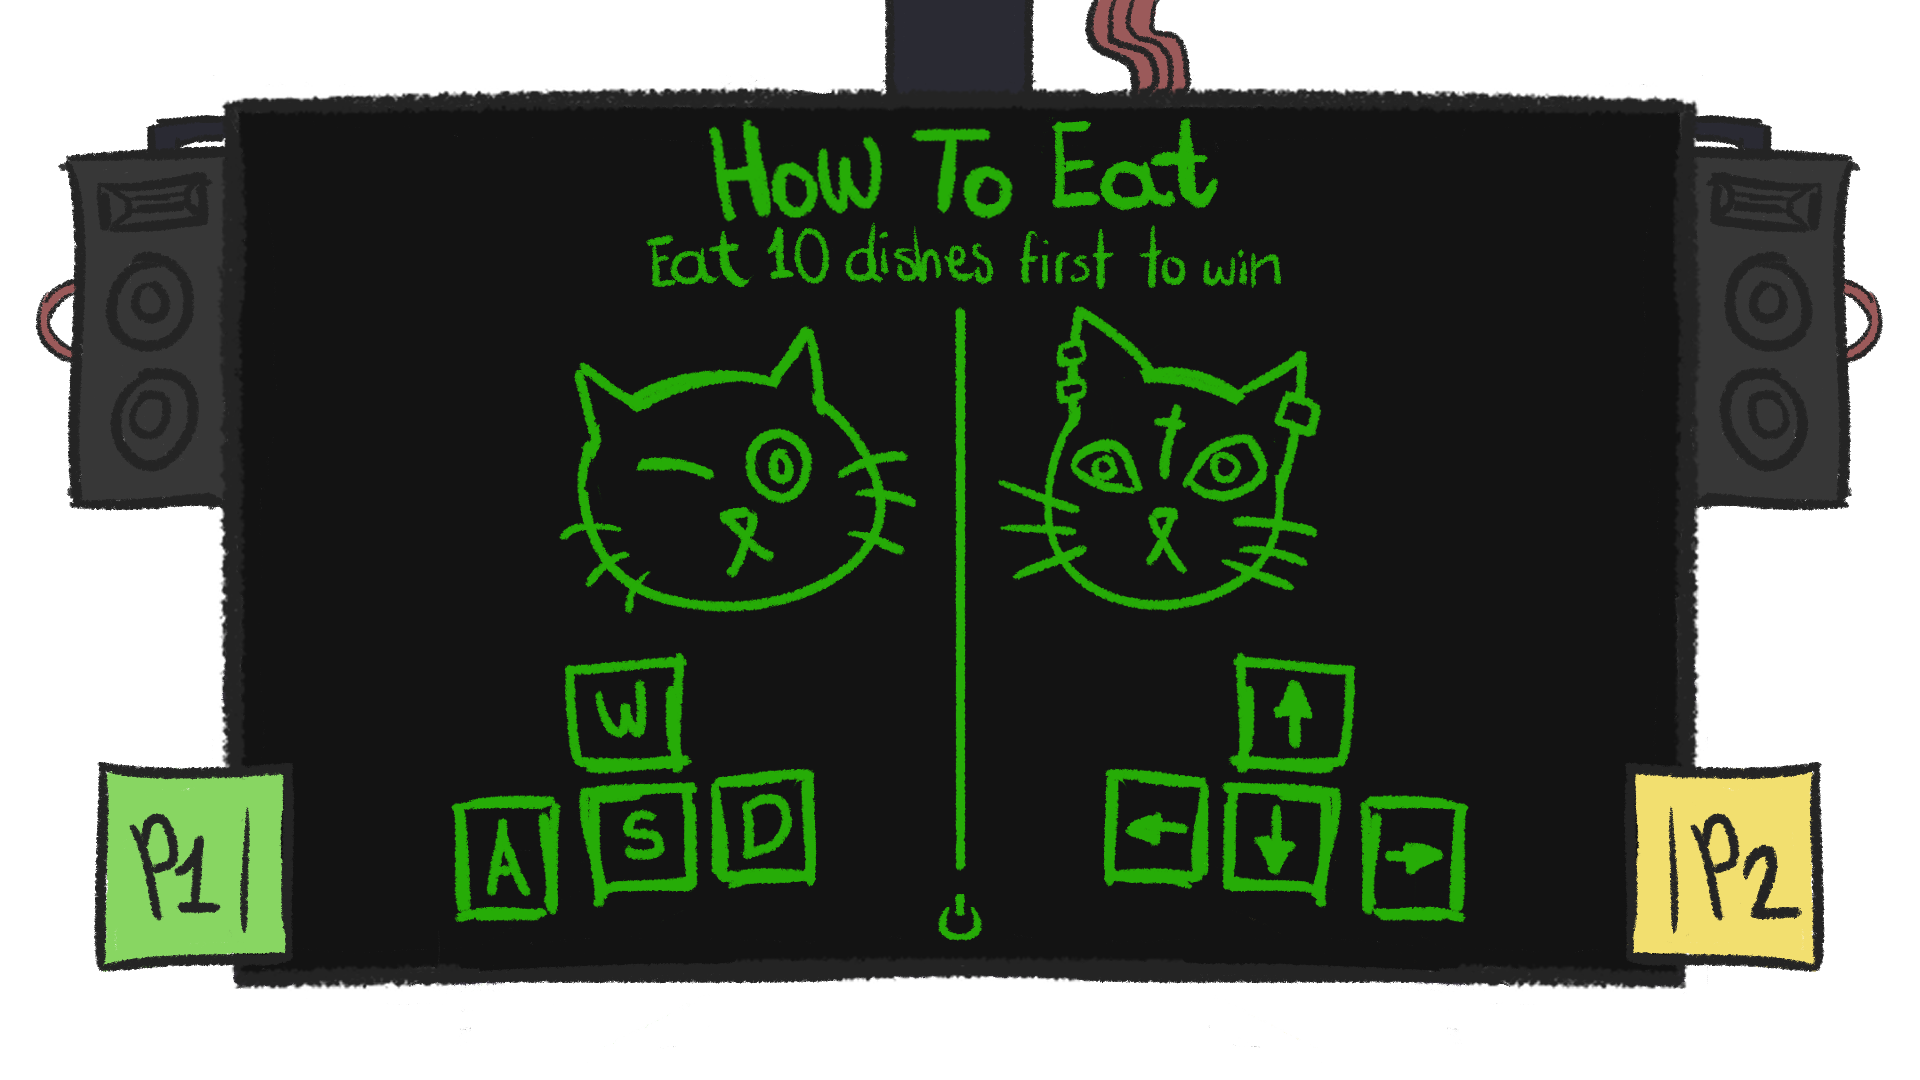 How To Eat
Eat 10 dishes first to win
W
A S D
P1
P2